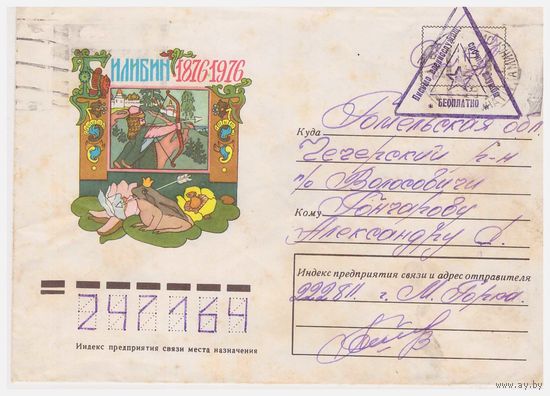 БИЛИБИН 1876-1976
Письмо военнослужащего срочной службы
БЕСПЛАТНО
Куда Гомельская обл.
Чечерский р-н
п/о Волосовичи
Кому Гончарову
Александру
Индекс предприятия связи и адрес отправителя
222811. г. М. Горка.
247164
Индекс предприятия связи места назначения
www.ay.by